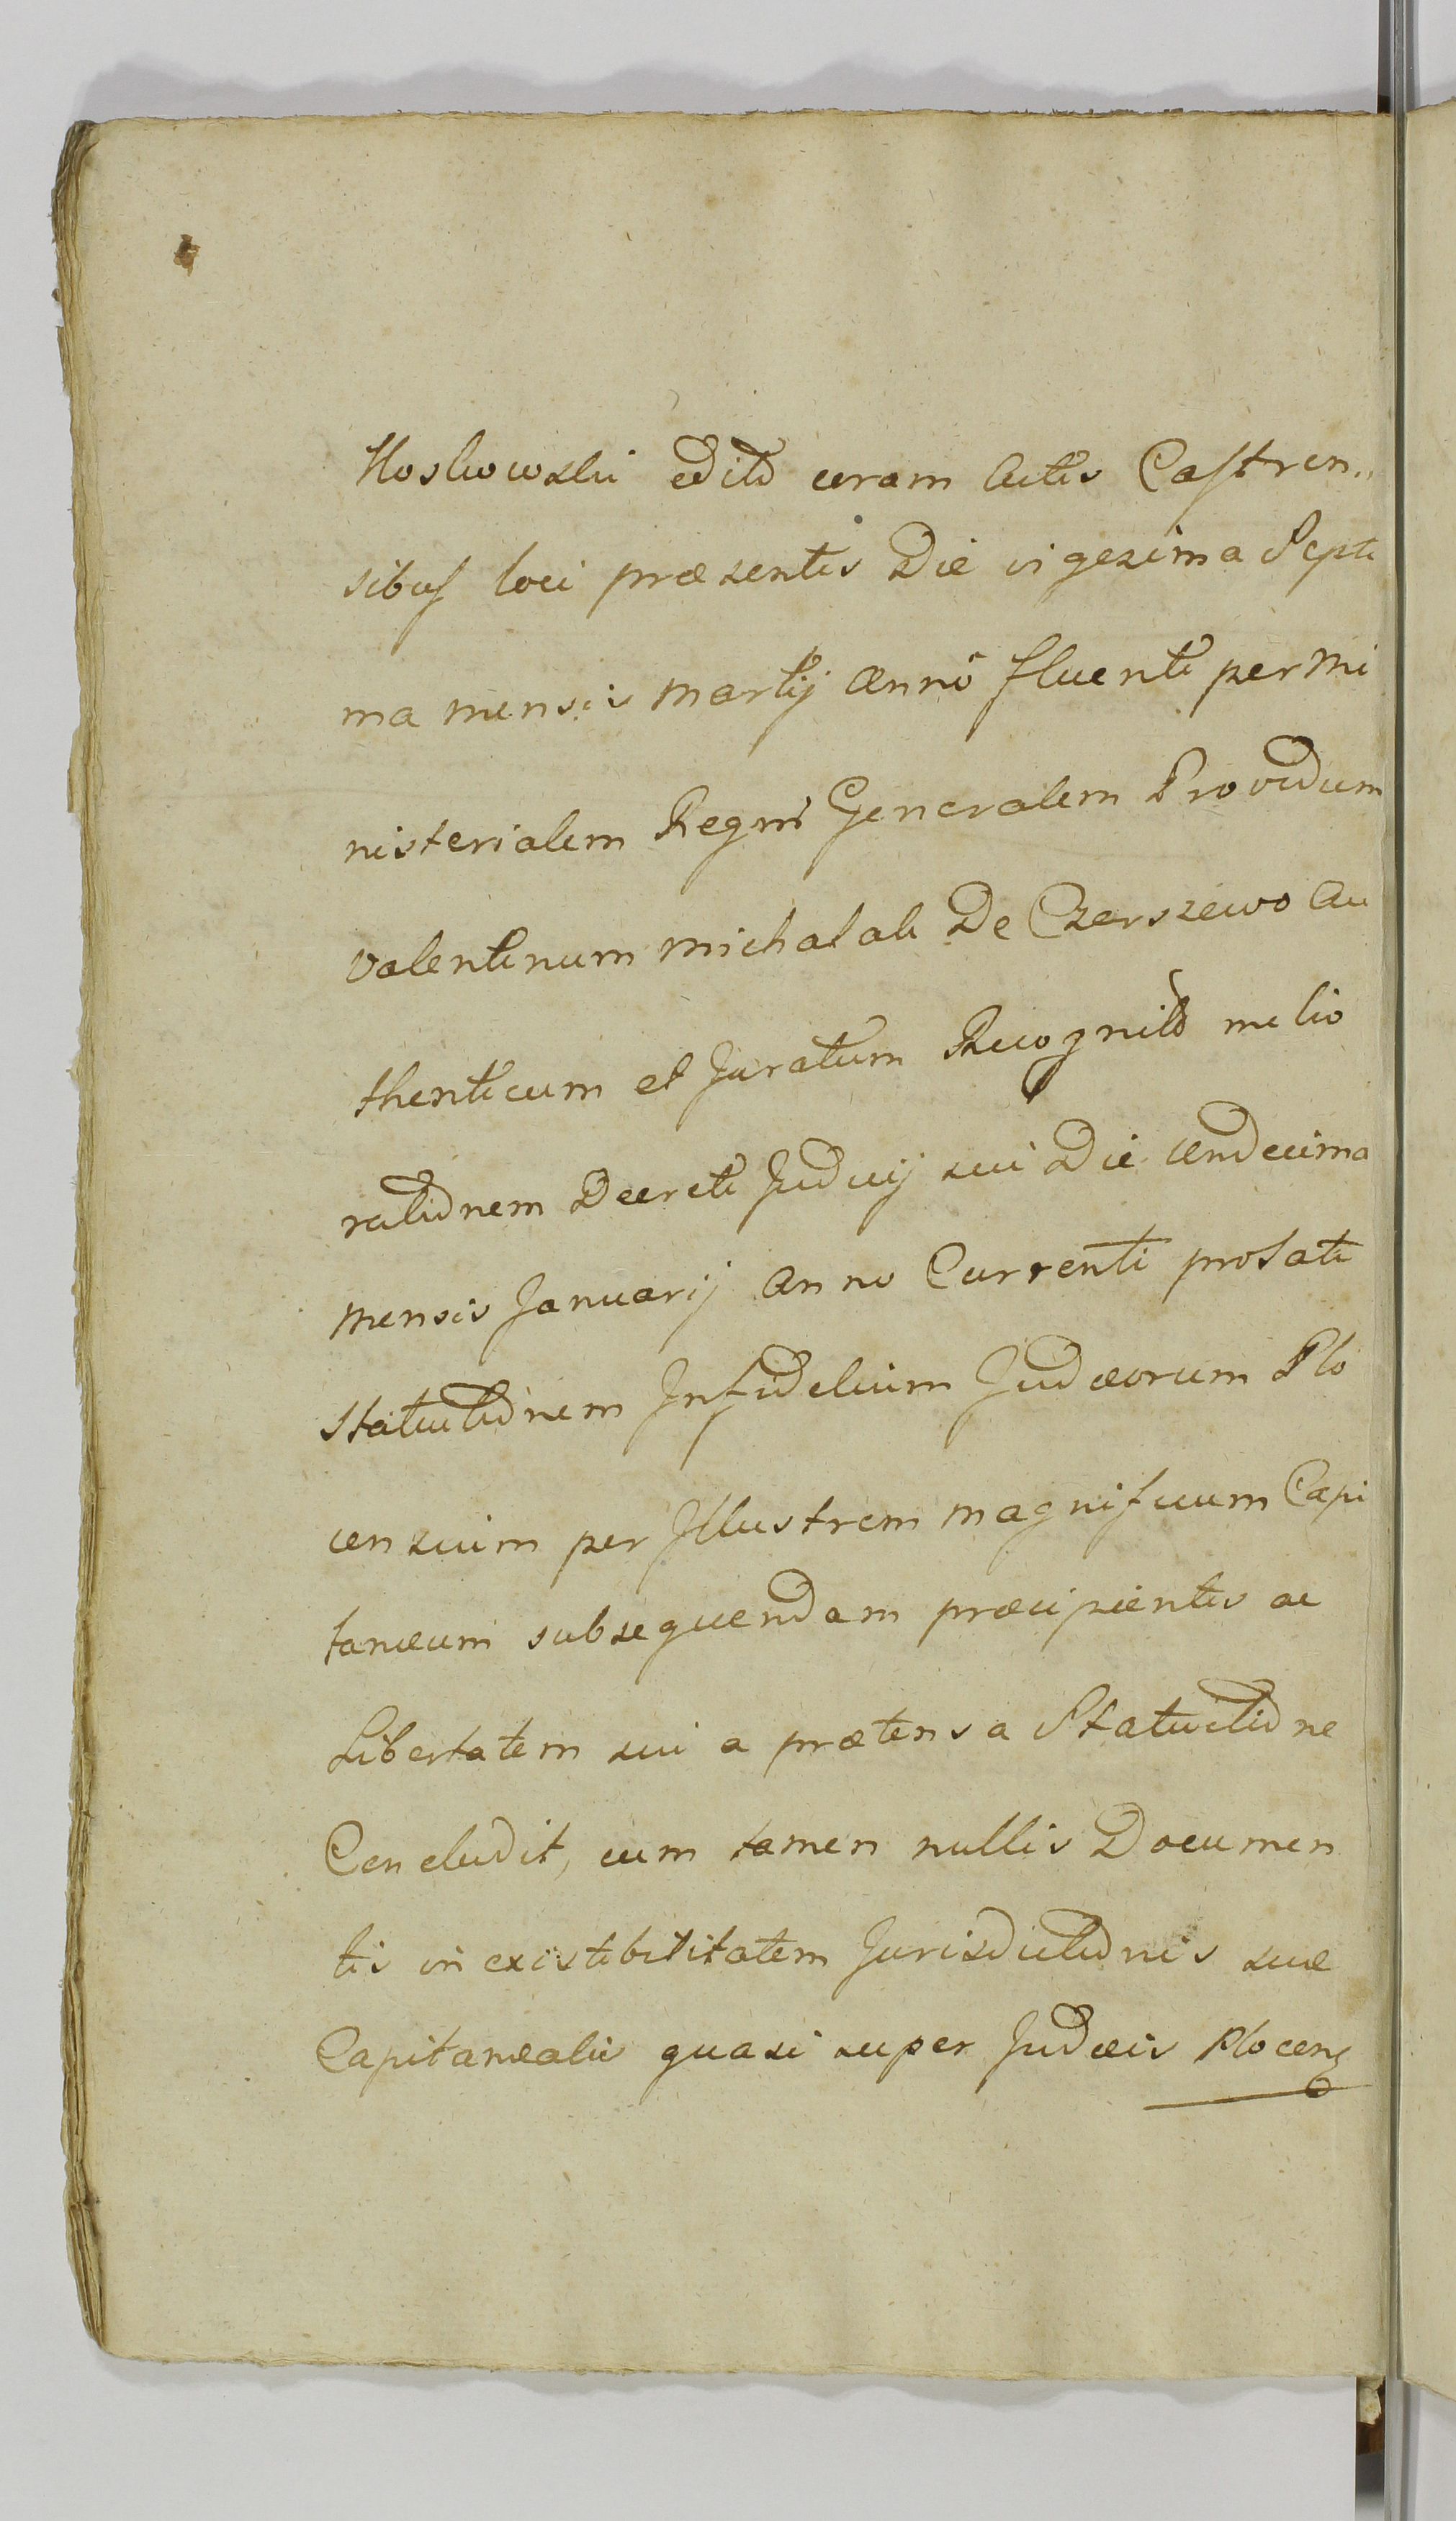 Koskowski edito coram Actis Castren..
sibus loci præsentis Die vigezima Septi
ma mensis Martij Anno fluenti per Mi
nisterialem Regni Generalem Providum
Valentinum Michalak De Czerszewo Au
thenticum et Juratum Recognito melio
rationem Decreti Judicij sui Die undecima
Mensis Januarij Anno Currenti pro Sati
statuitionem Infidelium Judæorum Plo
censium per Illustrem Magnificum Capi
taneum subsequendam præcipientis ac
Libertatem sui a prætensa Statuitione
Concludit, cum tamen nullis Documen
tis in existibilitatem Jurisdictionis suæ
Capitanealis quasi super Judæis Plocens